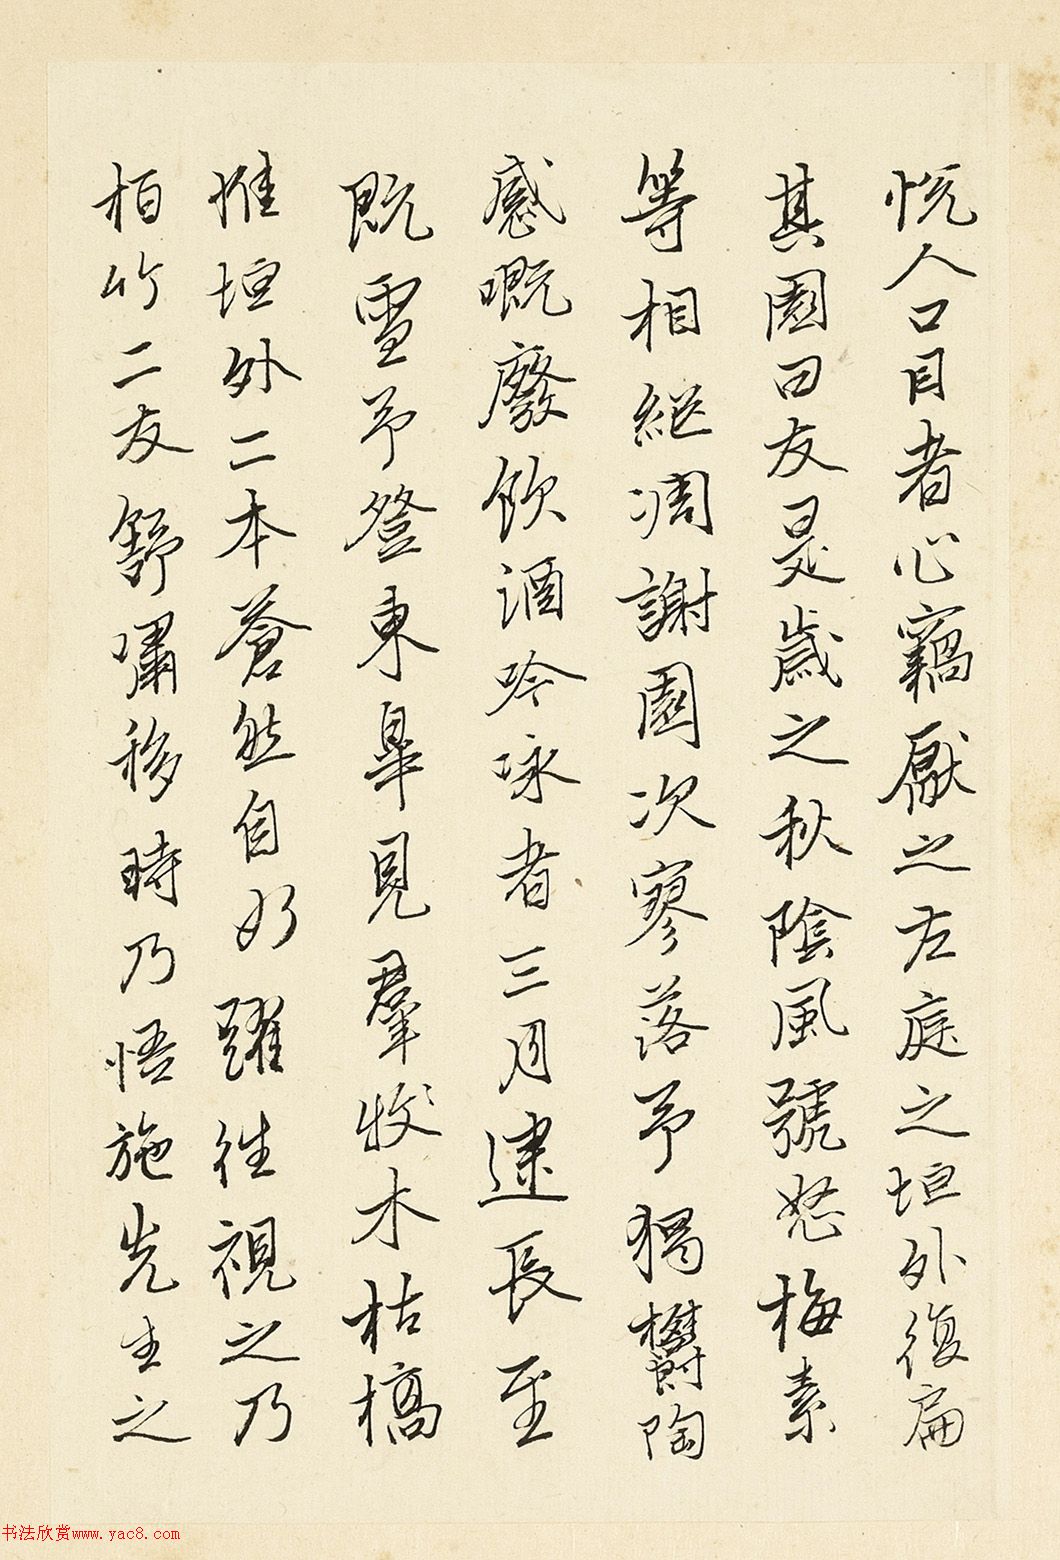 悅人口目者心竊厭之左庭之垣外復扁
其園曰友是歲之秋陰風號怒梅素
等相繼凋謝園次寥落予獨鬱陶
感嘅廢飲酒吟咏者三月逮長至
既雪予登東皋見羣牧木枯槁
惟垣外二本蒼然自如躍往視之乃
栢竹二友舒嘯移時乃悟施先生之
书法欣赏www.yac8.com